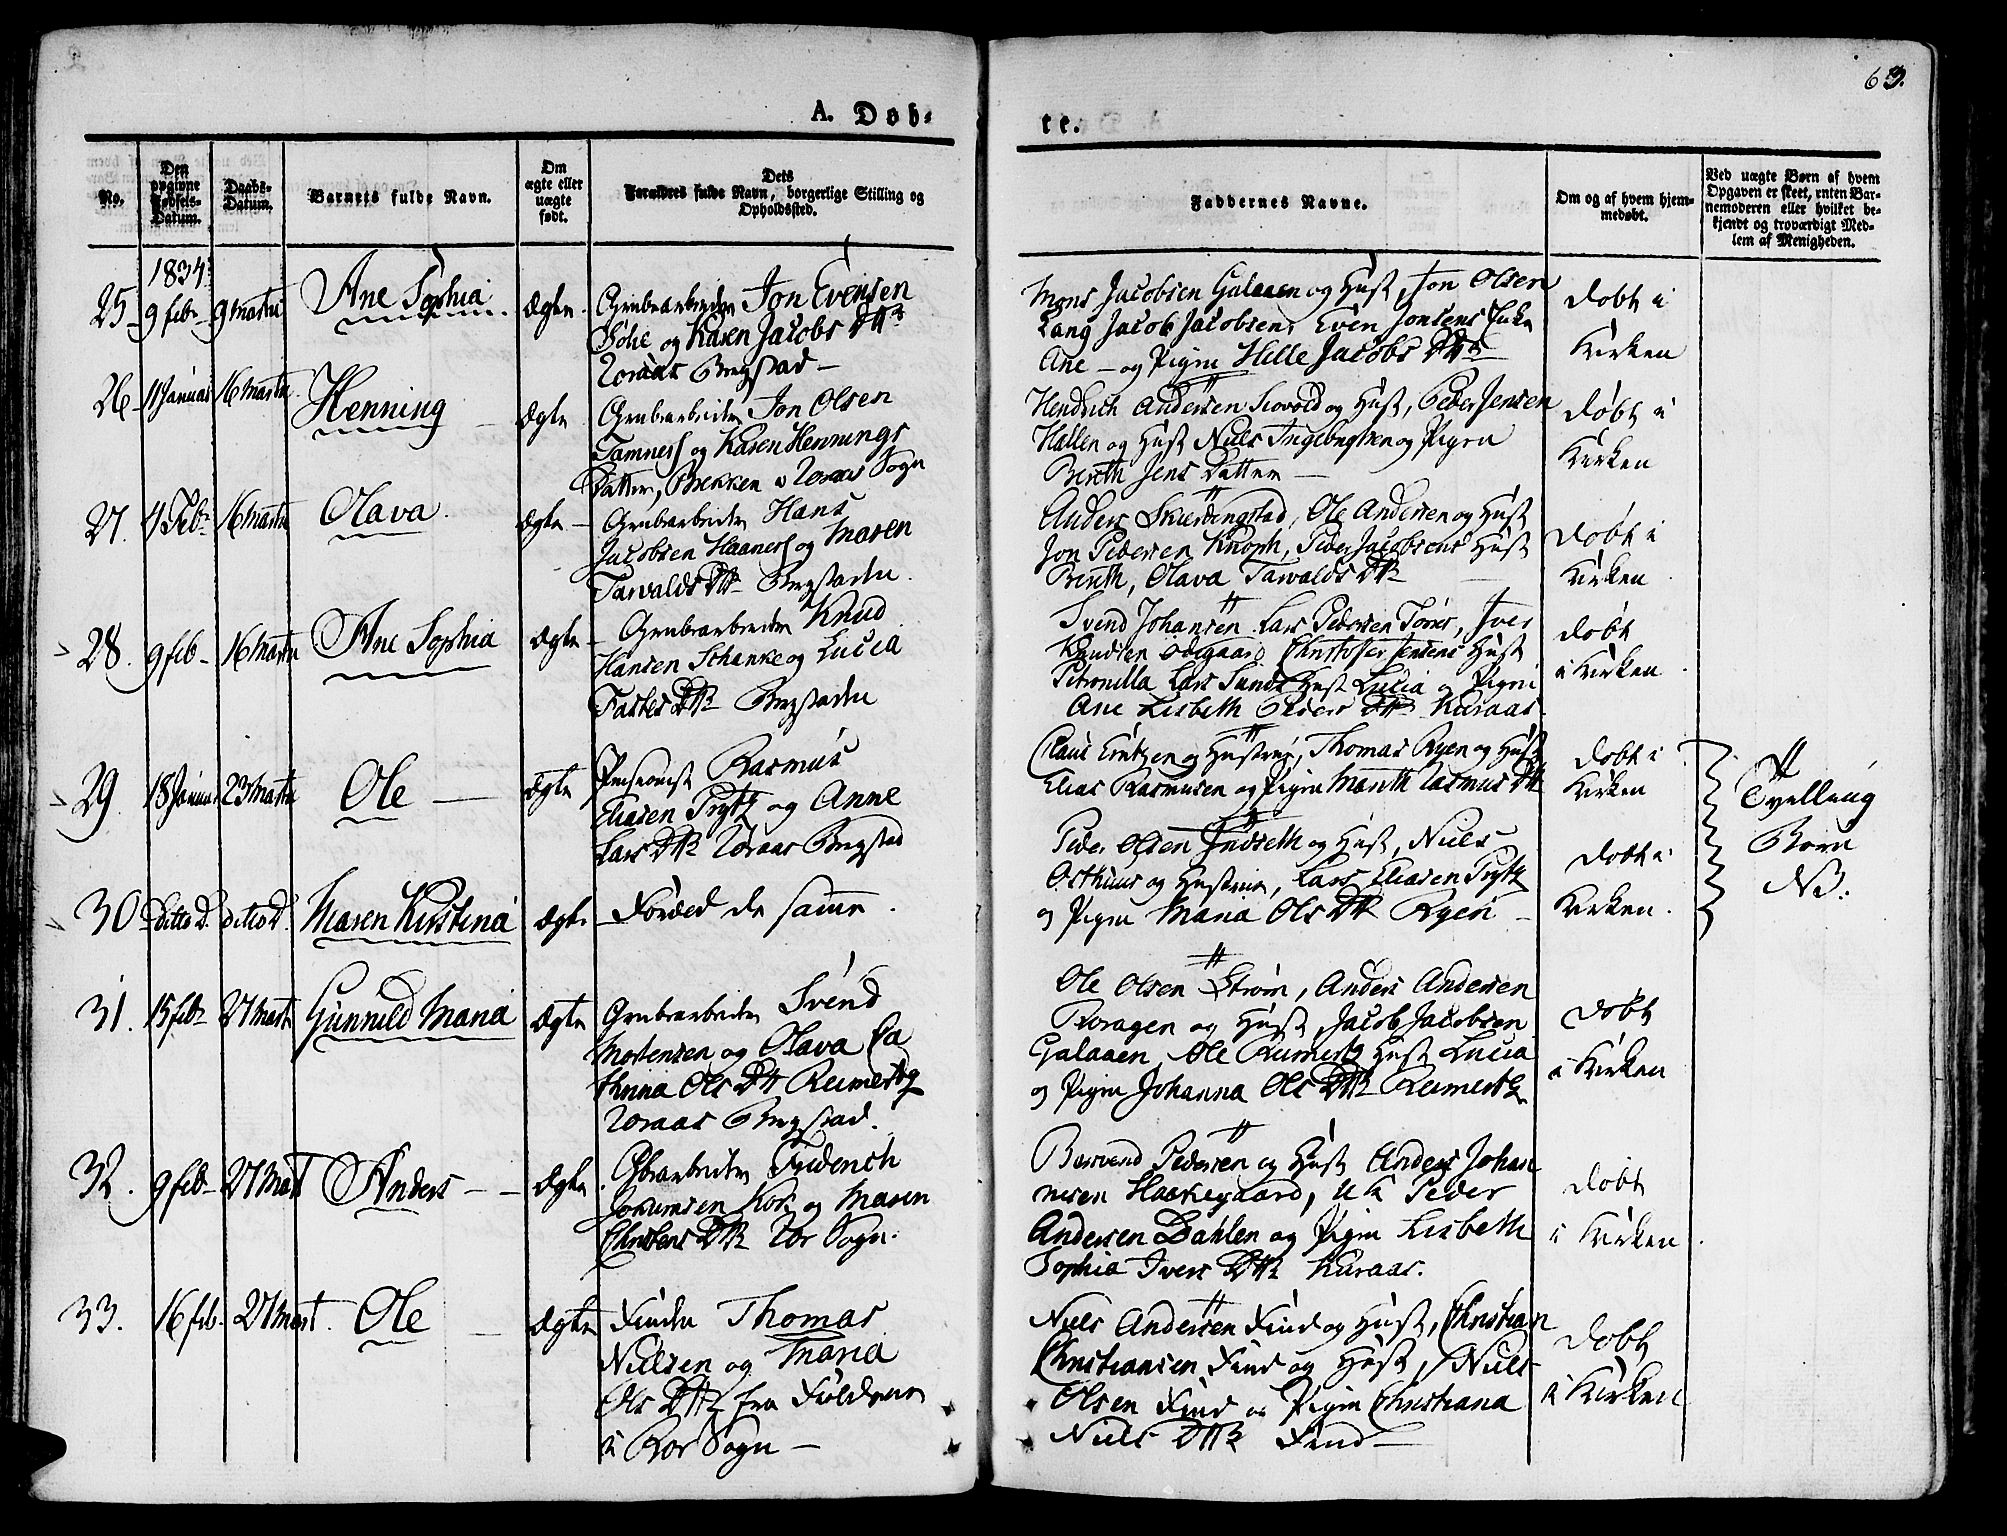 63.
A. Døb-
te.
No.
Den
opgivne
Fødsels-
Datum.
Daabs-
Datum.
Barnets fulde Navn.
Om
ægte eller
uægte
født.
Dets
Forældres fulde Navn, borgerlige Stilling og
Opholdssted.
Faddernes Navne.
Om og af hvem hjem-
medøbt.
Ved uægte Børn af hvem
Opgaven er skeet, enten Bar-
nemoderen eller hvilket be-
kjendt og troværdigt Med-
lem af Menigheden.
1834
25 9 feb 9 Martii Ane Sophia Ægte Grubearbeider Jon Evensen
og Karen Jacobs Dtr
Röraas Bergstad
Mons Jacobsen Galaaen og Hust, Jon Olsen
Lang Jacob Jacobsen, Even Jonsens Enke
Ane og Pigen Helle Jacobs Dtr
døbt i
Kirken
26 11 Januar 16 Martii Henning Ægte Grubearbeider Jon Olsen
Tamnes og Karen Hennings
Datter, Brekken Röraas Sogn
Hendrich Andersen og Hust, Peder Jensen
Hallen og Hust Niels Ingebrigtsen og Pigen
Bereth Jens Datter
døbt i
Kirken
27. 4 Feb 16 Martii Olava Ægte Grubearbeider Hans
Jacobsen Haanes og Maren
Tarvalds Dtr Bergstaden
Anders Skierdingstad, Ole Andersen og Hust
Jon Pedersen Knoph, Peder Jacobsens Hust
Bereth, Olava Tarvalds Dtr
døbt i
Kirken
28. 9 feb 16 Martii Ane Sophia Ægte Grubearbeider Knud
Hansen Schanke og Lucia
Fastes Dtr Bergstaden
Svend Johansen Lars Pedersen, Iver
Knudsen Ødegaard Christofer Jensens Hust
Petronilla Lars Hust Lucia og Pigen
Ane Lisbeth Peders Dtr Kuraas
døbt
i Kirken
29 18 Januar 23 Martii Ole Ægte Pensionist Rasmus
Eliasen Prytz og Anne
Lars Dtr Röraas Bergstad
Claus Erntzen og Hustru, Thomas Ryen og Hust
Elias Rasmusen og Pigen Marith Rasmus Dtr
døbt i
Kirken
Tvelling
Børn
NB.
30 Ditto D. ditto D. Maren Kirstina Ægte Foræld de samme.
Peder Olsen Indseth og Hust, Niels
Osthuus og Hustrue, Lars Eliasen Prytz
og Pigen Maria Ols Dtr Ryen
døbt i
Kirken.
31. 15 feb 27 Marti Gunnild Maria Ægte Grubearbeider Svend
Mortensen og Olava Ca
thrina Ols Dtr Reimertz
Röraas Bergstad.
Ole Olsen Strøm, Anders Andersen
Koragen og Hust, Jacob Jacobsen
Galaaen, Ole Reimertz Hust Lucia
og Pigen Johanna Ols Dtr Reimertz
døbt
i Kirken
32. 9 feb 27 Mart Anders Ægte Friderich
Jokumsen Kok og Maren
Christens Dtr Sogn.
Pedersen og Hust Anders Johan
nesen, U K Peder
Andersen Dahlen og Pigen Lisbeth
Sophia Ivers Dtr Kuraas.
døbt
i Kirken
33. 16 feb. 27 Mart. Ole Ægte Finden Thomas
Nielsen og Maria
Ols Dtr fra
i Ror Sogn
Niels Andersen Find og Hust, Christian
Christiansen Find og Hust, Niels
Olsen Find og Pigen Christiana
Niels Dtr Find
døbt
i Kirken